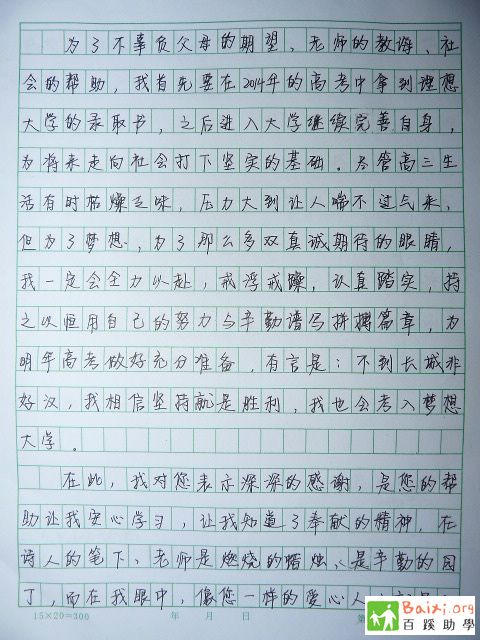 为了不辜负父母的期望、老师的教诲、社
会的帮助，我首先要在2014年的高考中拿到理想
大学的录取书，之后进入大学继续完善自身，
为将来走向社会打下坚实的基础。尽管高三生
活有时枯燥乏味，压力大到让人喘不过气来，
但为了梦想，为了那么多双真诚期待的眼睛，
我一定会全力以赴，戒浮戒躁，认真踏实，持
之以恒用自己的努力与辛勤谱写拼搏篇章，为
明年高考做好充分准备，有言是：不到长城非
好汉，我相信坚持就是胜利，我也会考入梦想
大学。
在此，我对您表示深深的感谢，是您的帮
助让我安心学习，让我知道了奉献的精神，在
诗人的笔下、老师是燃烧的蜡烛、是辛勤的园
丁，而在我眼中，像您一样的爱心人
15×20=300 年 月 日 第
Baixi.org
百蹊助學